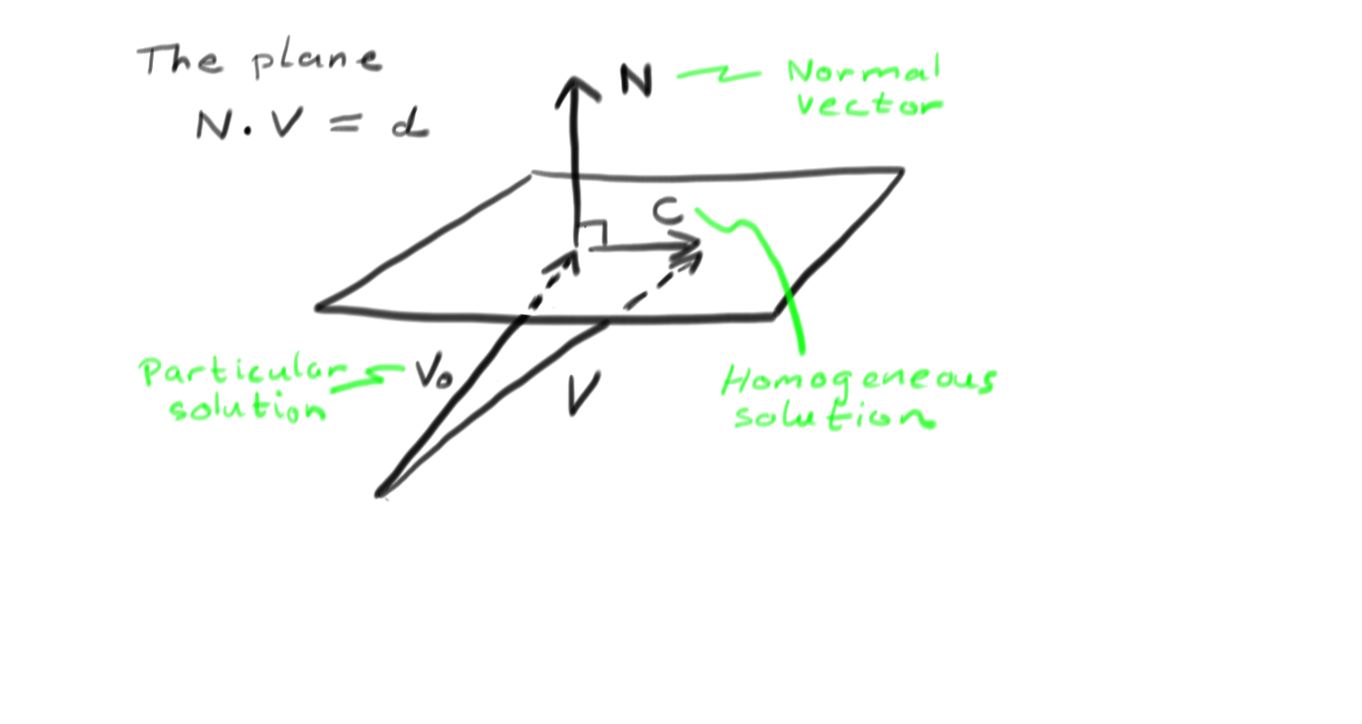 The plane
N·V = d
N
Normal
vector
C
Particular
solution
V₀
V
Homogeneous
solution